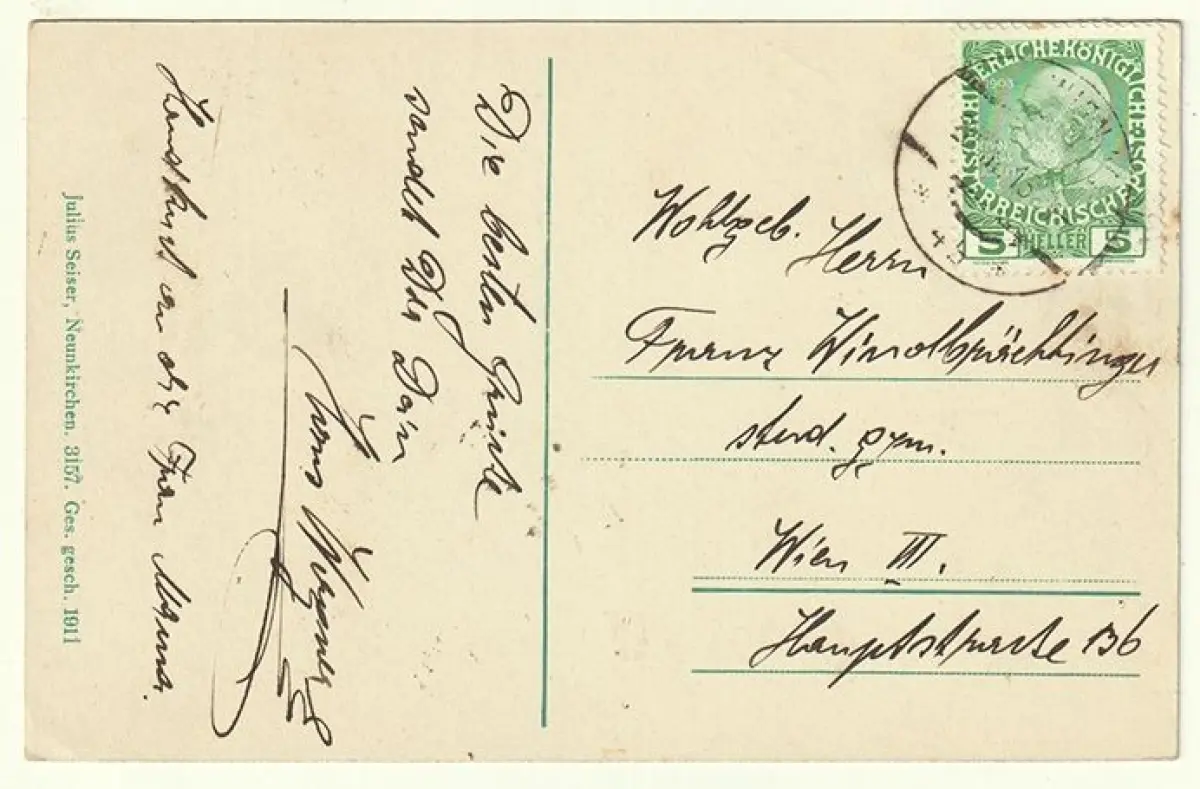 Die besten Grüße
sendet Dir Dein
Handkuß an die Frau Mama.
Julius Seiser, Neunkirchen. 3157. Ges. gesch. 1911
KAISERLICHE KÖNIGLICHE ÖSTERREICHISCHE
5 HELLER 5
Wohlgeb.
Herrn
Franz Windbrächtinger
stud. gym.
Wien III.
Hauptstrasse 136